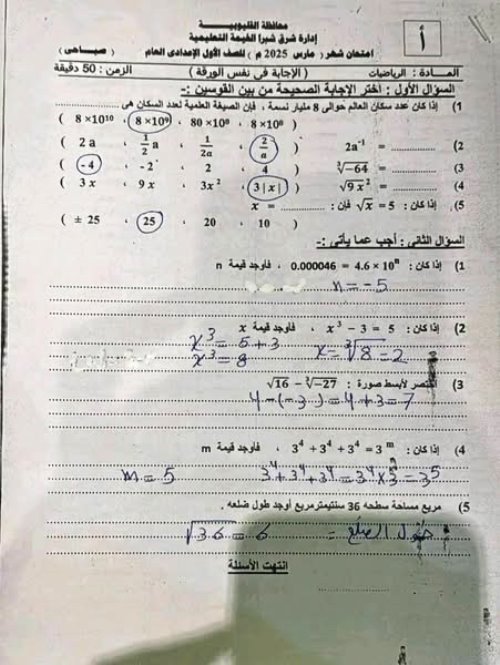 محافظة القليوبية
إدارة شرق شبرا الخيمة التعليمية
امتحان شهر ( مارس 2025 م ) للصف الأول الإعدادى العام ( صباحى )
أ
المـادة : الرياضيات ( الإجابة فى نفس الورقة ) الزمن : 50 دقيقة
السؤال الأول : اختر الإجابة الصحيحة من بين القوسين :-
1) إذا كان عدد سكان العالم حوالى 8 مليار نسمة ، فإن الصيغة العلمية لعدد السكان هى ..........
( 8 × 10⁶ ، 80 × 10⁸ ، 8 × 10⁹ ، 8 × 10¹⁰ )
2) 2a⁻¹ = .......... ( 2/a ، 1/2a ، 1/2 a ، 2 a )
3) ∛−64 = .......... ( 4 ، 2 ، - 2 ، - 4 )
4) √9 x² = .......... ( 3 | x | ، 3 x² ، 9 x ، 3 x )
5) إذا كان : √x = 5 فإن : x = ..........
( 10 ، 20 ، 25 ، ± 25 )
السؤال الثانى : أجب عما يأتى :-
1) إذا كان : 0.000046 = 4.6 × 10ⁿ ، فأوجد قيمة n
n = - 5
2) إذا كان : x³ − 3 = 5 ، فأوجد قيمة x
x³ = 5 + 3
x³ = 8 x = ∛8 = 2
3) اختصر لأبسط صورة : √16 − ∛−27
4 - (-3) = 4 + 3 = 7
4) إذا كان : 3⁴ + 3⁴ + 3⁴ = 3ᵐ ، فأوجد قيمة m
3⁴ + 3⁴ + 3⁴ = 3⁴ × 3 = 3⁵ m = 5
5) مربع مساحة سطحه 36 سنتيمتر مربع أوجد طول ضلعه .
طول الضلع = √36 = 6
انتهت الأسئلة